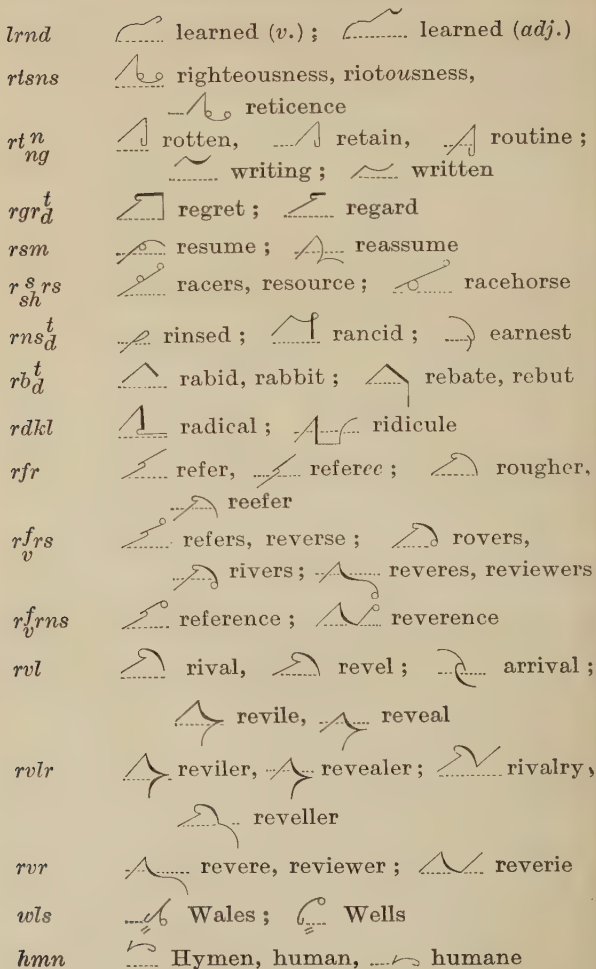 lrnd learned (v.) ; learned (adj.)
rtsns righteousness, riotousness,
reticence
rt n ng rotten, retain, routine ;
writing ; written
rgr t d regret ; regard
rsm resume ; reassume
r s sh rs racers, resource ; racehorse
rns t d rinsed ; rancid ; earnest
rb t d rabid, rabbit ; rebate, rebut
rdkl radical ; ridicule
rfr refer, referee ; rougher,
reefer
r f v rs refers, reverse ; rovers,
rivers ; reveres, reviewers
r f v rns reference ; reverence
rvl rival, revel ; arrival ;
revile, reveal
rvlr reviler, revealer ; rivalry,
reveller
rvr revere, reviewer ; reverie
wls Wales ; Wells
hmn Hymen, human, humane